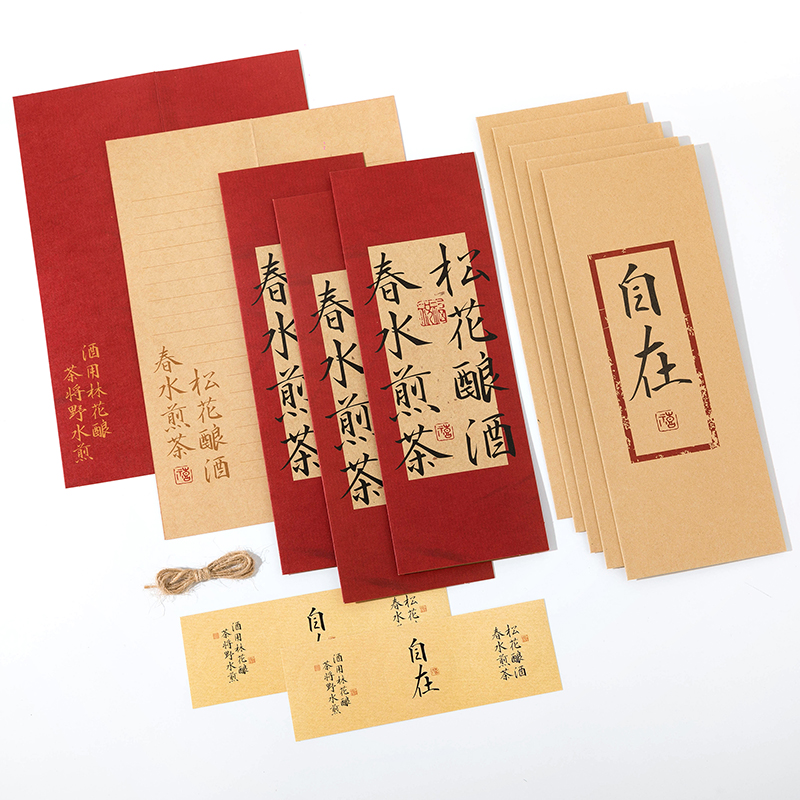 酒用林花酿
茶将野水煎
松花酿酒
春水煎茶
春水煎茶
春水煎茶
松花酿酒
春水煎茶
自在
酒用林花酿
茶将野水煎
自
松花
春
酒用林花酿
茶将野水煎
自在
松花酿酒
春水煎茶